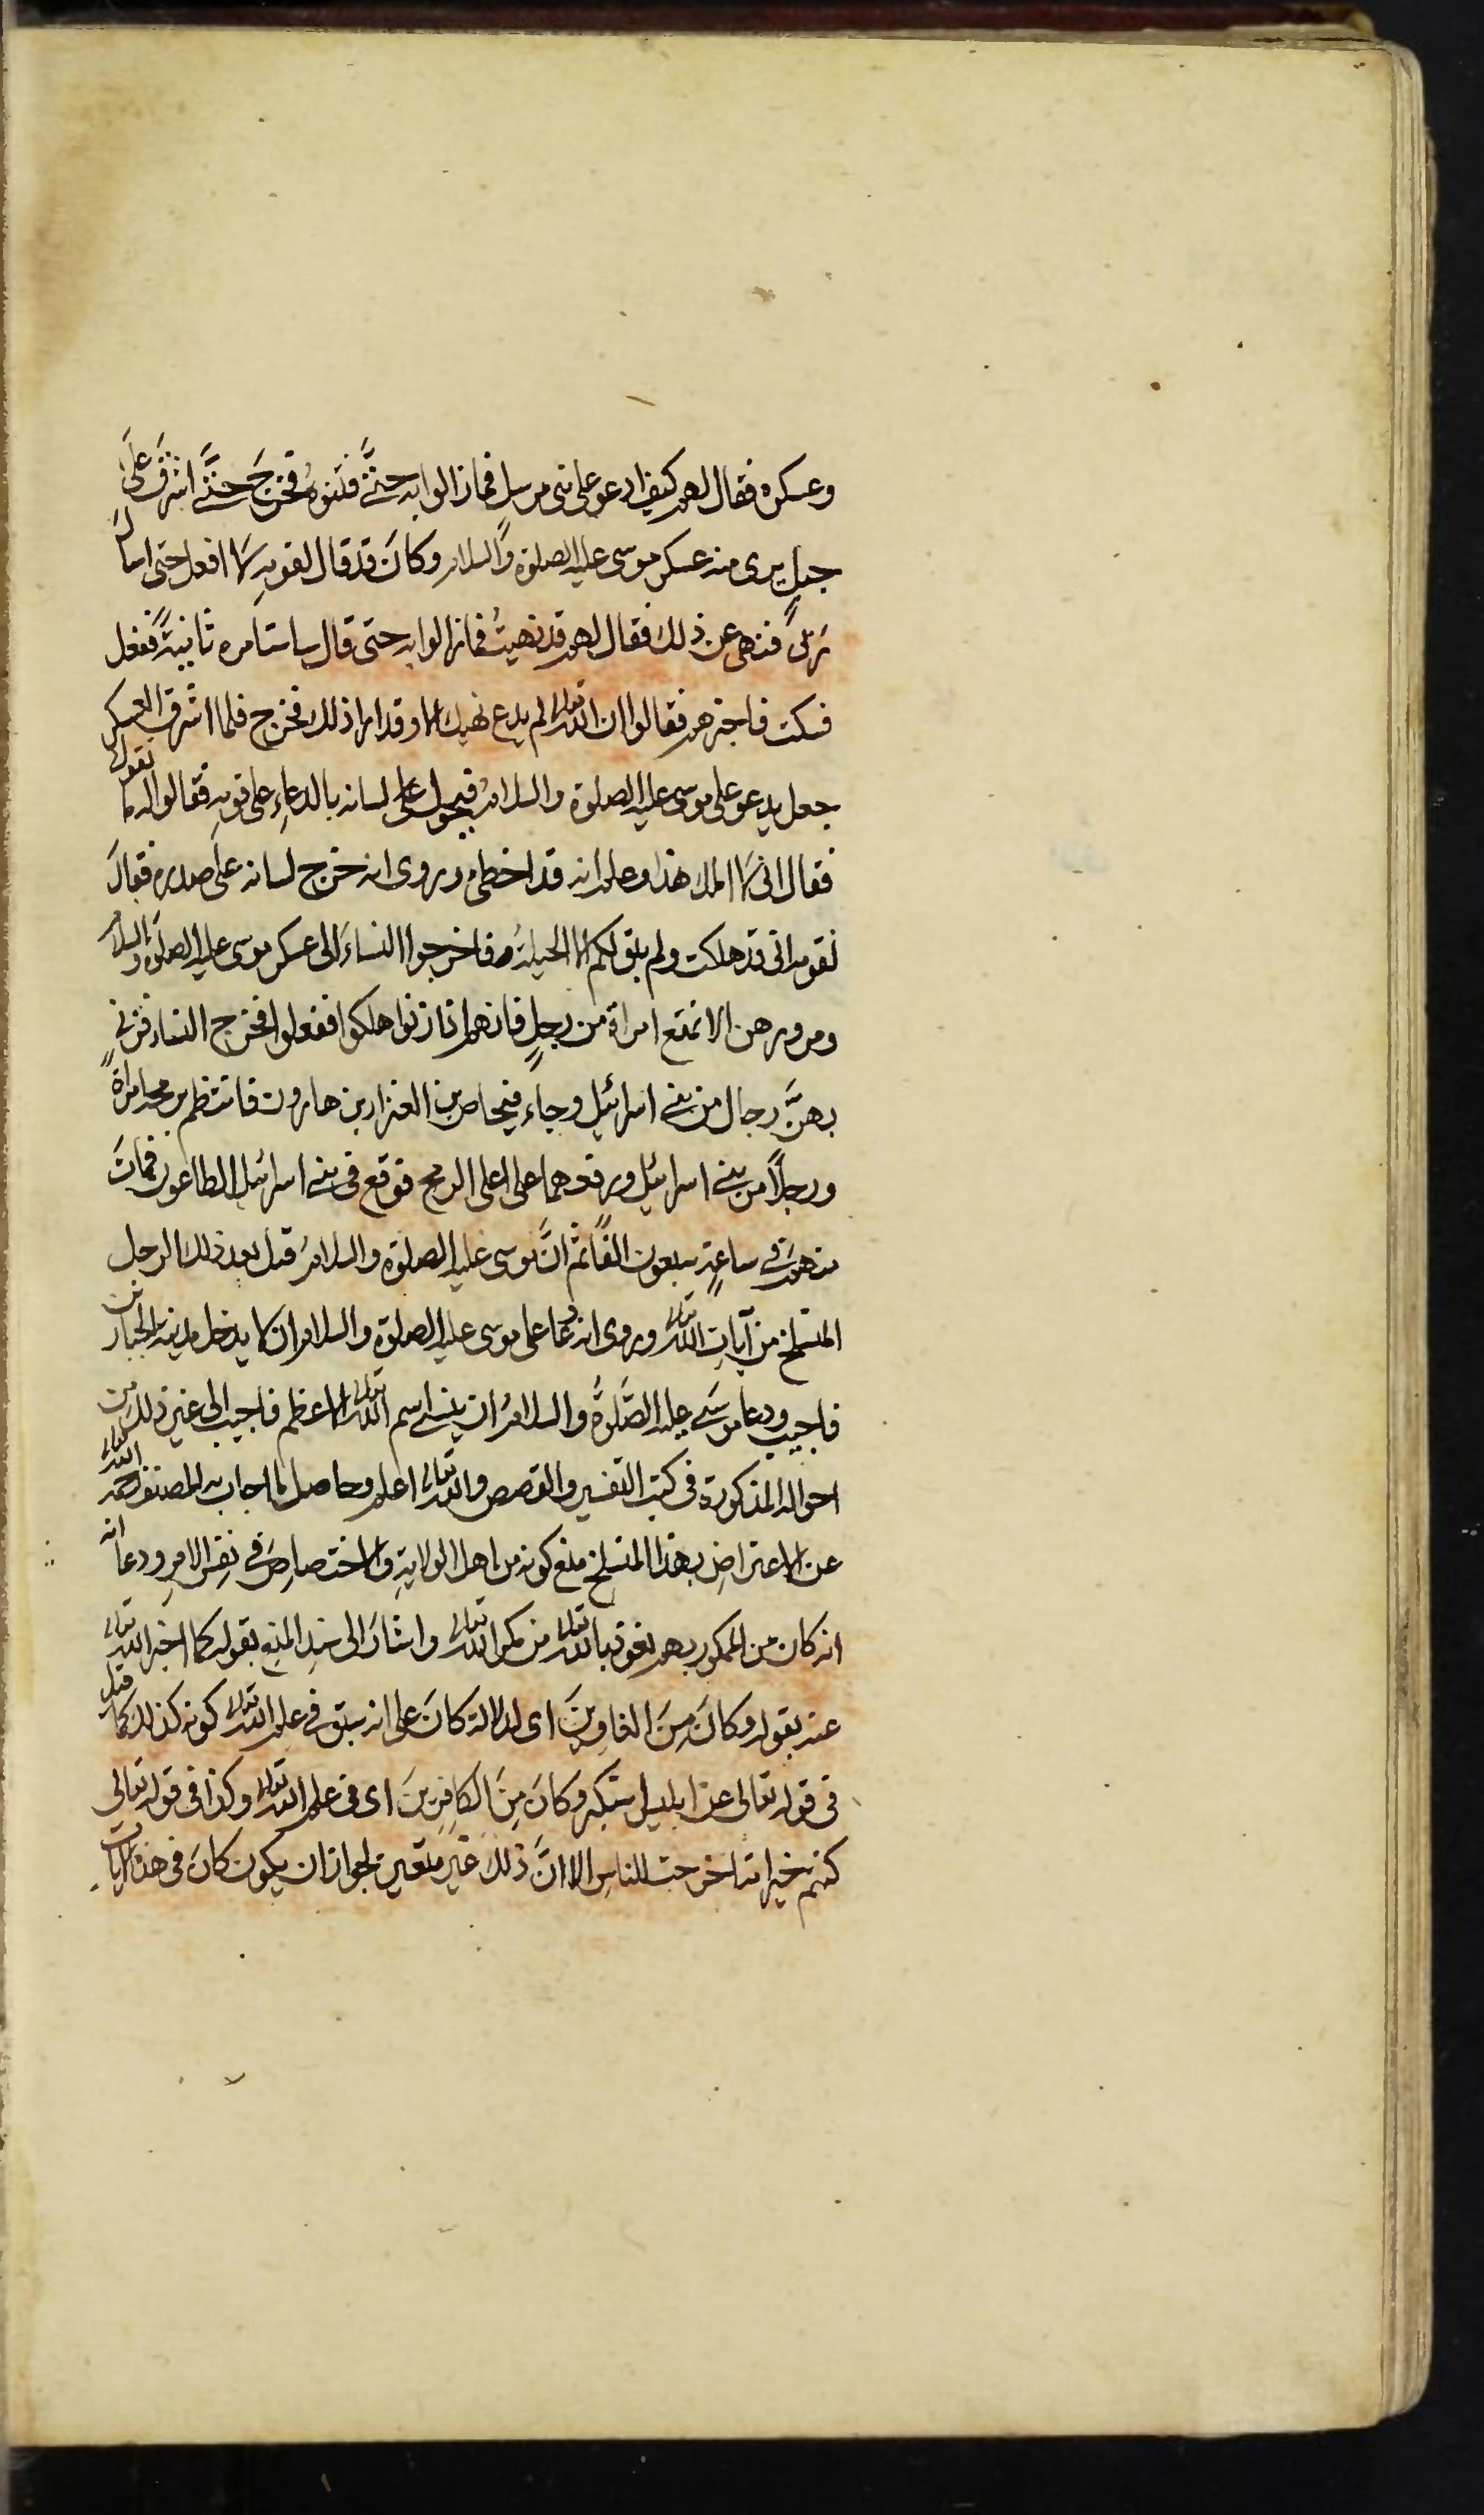 وعسكره فقال لهم كيف ادعو على نبى مرسل فمازالوا به حتَّى فتنوهُ فخرجَ حتَّى اشرفَ علَى
جبلٍ يرى منه عسكر موسى عليه الصلوة والسلام وكانَ قد قال لقومِه لا افعل حتى استامر
ربىّ فنهى عن ذلك فقال لهم قد نهيتُ فمازالوا به حتى قال ساستامره ثانيةً ففعل
فسكت فاخبرهم فقالوا ان الله تعالى لم يدع نهيك الا وقد اراد ذلك فخرج فلما اشرف العسكر
جعل يدعو على موسى عليه الصلوة والسلامُ فيحول على لسانه بالدعاءِ على قومِه فقالوا له ما تقول
فقال انى لا املك هذا وعلم انه قد اخطىء وروى انه خرج لسانه على صدره فقالَ
لقومه انى قد هلكت ولم يبق لكم الا الحيلةُ فاخرجوا النساءَ الى عسكر موسى عليه الصلوة والسلام
ومروهن الا تمتنع امراة من رجلٍ فانهم اذا زنوا هلكوا ففعلوا فخرج النساء فزنى
بهنَّ رجال من بنى اسرائيل وجاء فيحاص بن العزار بن هارون فانتظم برمحه امراةً
ورجلاً من بنى اسرائيل ورفعهما على اعلى الرمح فوقع فى بنى اسرائيل الطاعون فماتَ
منهم فى ساعةٍ سبعون الفًا ثم انَّ موسى عليه الصلوة والسلامُ قتل بعد ذلك الرجل
المنسلخ من آياتِ الله تعالى وروى انه دعا على موسى عليه الصلوة والسلام ان لا يدخل مدينة الجبارين
فاجيب ودعا موسَى عليه الصَّلوةُ والسلامُ ان ينسى اسم الله تعالى الاعظم فاجيب الى غير ذلك من
احواله المذكورة فى كتب التفسير والقصص والله تعالى اعلم وحاصل ما اجاب به المصنف رحمه الله تعالى
عن الاعتراضِ بهذا المنسلخ منع كونه من اهل الولايةِ والاختصاصِ فى نفس الامرِ ودعا انه
انه كان من الممكور بهم نعوذ بالله تعالى من مكر الله تعالى واشارَ الى سندِ المنعِ بقوله كما اخبر الله تعالى
عنه بقوله وكانَ مِنَ الغاوِينَ اى لدلالة كانَ على انه سبق فى علم الله تعالى كونه كذلك كما قيل
فى قوله تعالى عن ابليس استكبر وكانَ مِنَ الكافِرِينَ اى فى علم الله تعالى وكذا فى قوله تعالى
كنتم خير امة اخرجت للناسِ الا انَّ ذلك غير متعين لجواز ان يكون كانَ فى هذه الايات